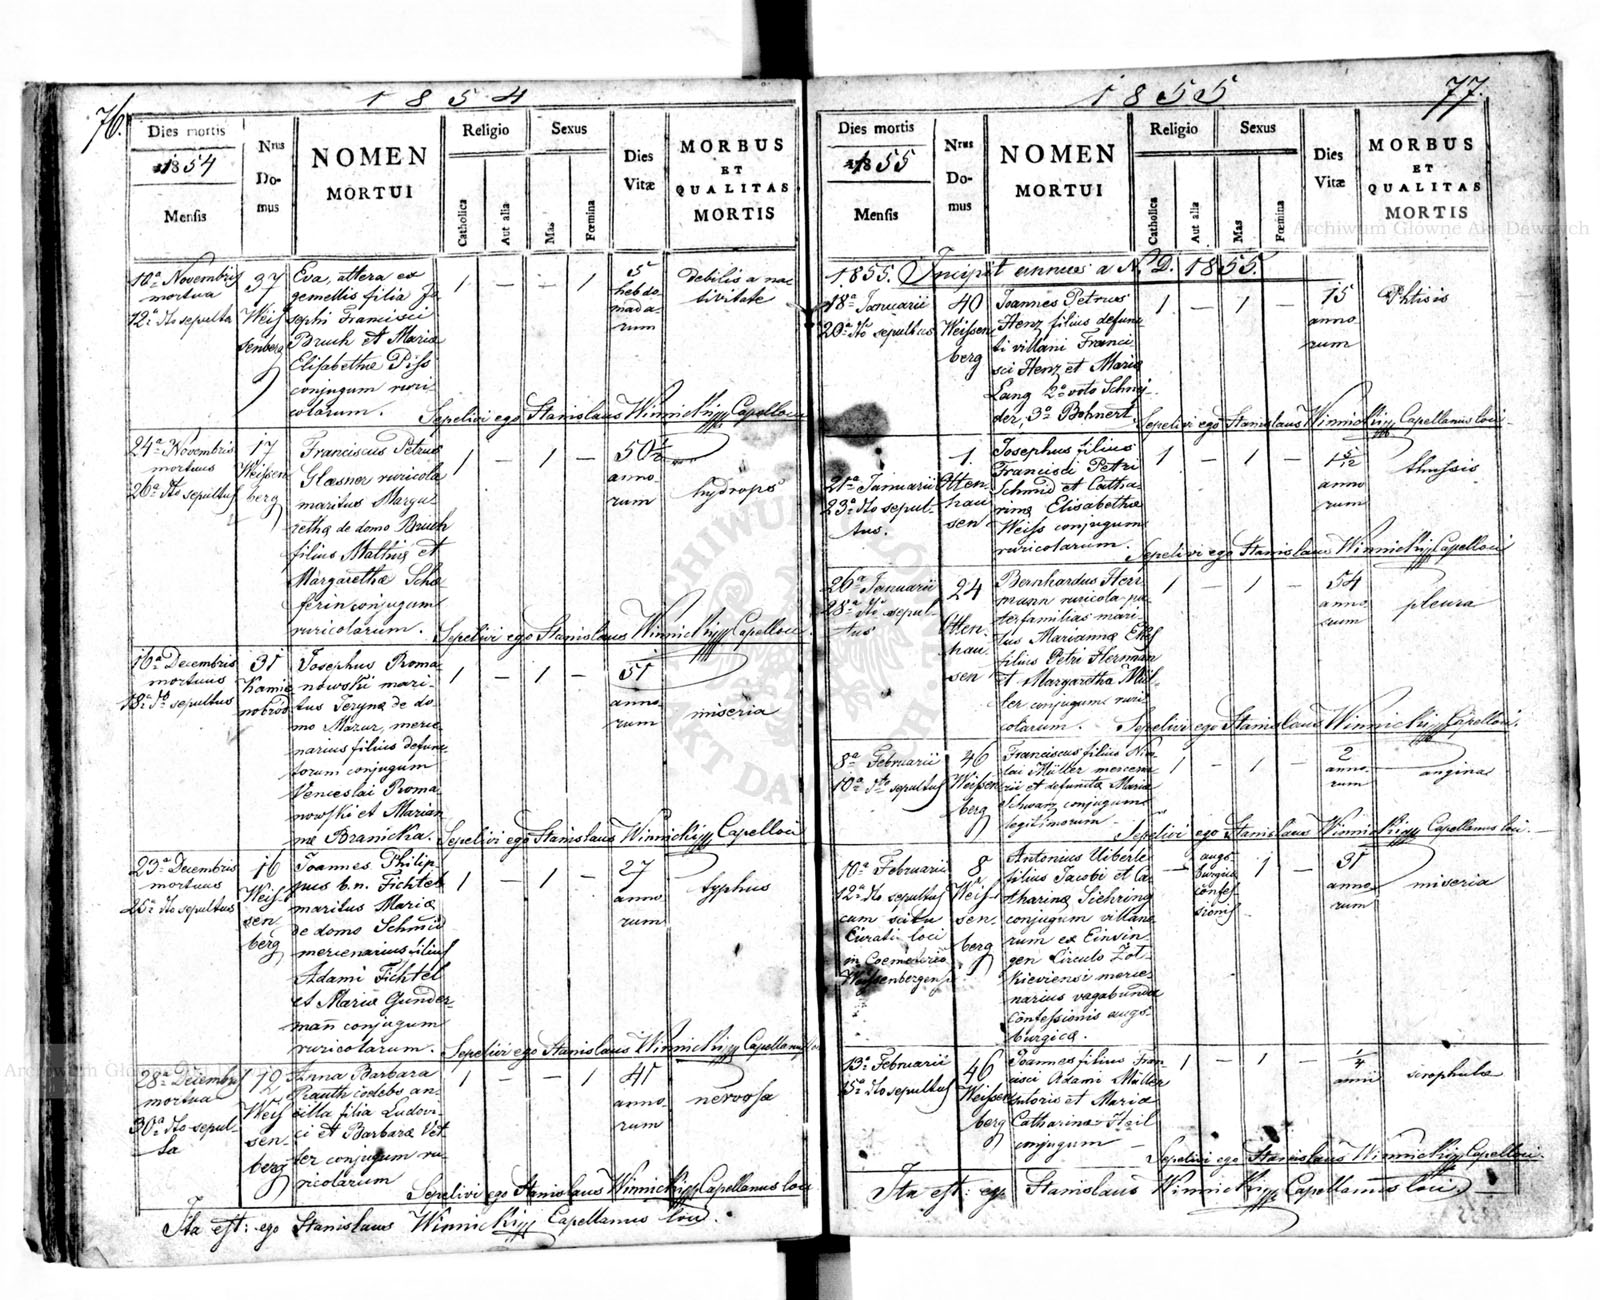 76.
1854
Dies mortis
1854
Mensis
Nrus
Do-
mus
NOMEN
MORTUI
Religio
Catholica
Aut alia
Sexus
Mas
Fœmina
Dies
Vitæ
MORBUS
ET
QUALITAS
MORTIS
10a Novembris
mortua
12a Ho sepulta
37
Weis
senberg
Eva, altera ex
gemellis filia Jo
sephi Francisci
Bruch et Maria
Elisabethæ Piss
conjugum ruri
colarum.
1 — — 1
5
hebdo
mada
rum
debilis a na
tivitate
Sepelivi ego Stanislaus Winnicki Capell loci
24a Novembris
mortuus
26a Ho sepultus
17
Weissen
berg
Franciscus Petrus
Glæsner ruricola
maritus Marga
rethæ de domo Bruch
filius Mathiæ et
Margarethæ Schæ
ferin conjugum
ruricolarum.
1 — 1 —
50½
anno
rum
hydrops
Sepelivi ego Stanislaus Winnicki Capell loci
16a Decembris
mortuus
18a Ho sepultus
31
Kamie
nobród
Josephus Roma
nowski mari-
tus Teryæ de do
mo Mazur, merce
narius filius defunc
torum conjugum
Venceslai Roma
nowski et Marian
næ Branicka.
1 — 1 —
51
anno
rum
miseria
Sepelivi ego Stanislaus Winnicki Capell loci
23a Decembris
mortuus
25a Ho sepultus
16
Weis
sen
berg
Joannes Philip
pus b. n. Fichtel
maritus Mariæ
de domo Schmid
mercenarius filius
Adami Fichtel
et Mariæ Gunder-
mañ conjugum
ruricolarum.
1 — 1 —
27
anno
rum
typhus
Sepelivi ego Stanislaus Winnicki Capellanus loci
28a Decembris
mortua
30a Ho sepul-
ta
12
Weis
sen-
berg
Anna Barbara
Rauth cœlebs an-
cilla filia Ludovi
ci et Barbaræ Vet
ter conjugum ru
ricolarum
1 — — 1
41
anno
rum
nervosa
Sepelivi ego Stanislaus Winnicki Capellanus loci
Ita est: ego Stanislaus Winnicki Capellanus loci.
1855
77.
Dies mortis
1855
Mensis
Nrus
Do-
mus
NOMEN
MORTUI
Religio
Catholica
Aut alia
Sexus
Mas
Fœmina
Dies
Vitæ
MORBUS
ET
QUALITAS
MORTIS
1855. Incipit annus a N. D. 1855.
18a Januarii
20a Ho sepultus
40
Weissen
berg
Joannes Petrus
Henz filius defunc
ti villani Franci
sci Henz et Mariæ
Lang 2o voto Schnej
der, 3o Bohnert
1 — 1 —
15
anno
rum
Phtisis
Sepelivi ego Stanislaus Winnicki Capellanus loci
21a Januarii
23a Ho sepul-
tus.
1.
Otten
hau
sen
Josephus filius
Francisci Petri
Schmid et Catha
rinæ Elisabethæ
Weiss conjugum
ruricolarum.
1 — 1 —
1 5/12
anno
rum
thussis
Sepelivi ego Stanislaus Winnicki Capell loci
26a Januarii
28a Ho sepul-
tus
24
Otten
hau
sen
Bernhardus Herr
mann ruricola pa
terfamilias mari
tus Mariannæ
filius Petri Herman
et Margaretha Mül
ler conjugum ruri
colarum.
1 — 1 —
54
anno
rum
pleura
Sepelivi ego Stanislaus Winnicki Capell loci.
8a Februarii
10a Ho sepultus
46
Weissen
berg
Franciscus filius Nico
lai Müller mercena
rii et defunctæ Mariæ
Schwarz conjugum
legitimorum.
1 — 1 —
2
anno
rum
angina
Sepelivi ego Stanislaus Winnicki Capellanus loci.
10a Februarii
12a Ho sepultus
cum scitu
Curati loci
in Coemeterio
Weissenbergensi
8
Weis
sen-
berg
Antonius Uiberle
filius Jacobi et Ca
tharinæ Siehring
conjugum villano
rum ex Einsin
gen Circulo Zol
kieviensi merce
narius vagabundæ
Confessionis augs-
burgicæ.
— augs
burgicæ
confes
sionis
1 —
31
anno
rum
miseria
13a Februarii
15a Ho sepultus
46
Weissen
berg
Joannes filius Fran
cisci Adami Müller
sutoris et Mariæ
Catharinæ Heil
conjugum
1 — 1 —
1/4
anni
scrophulæ
Sepelivi ego Stanislaus Winnicki Capell loci.
Ita est: ego Stanislaus Winnicki Capellanus loci.
Archiwum Główne Akt Dawnych
ARCHIWUM GŁÓWNE AKT DAWNYCH